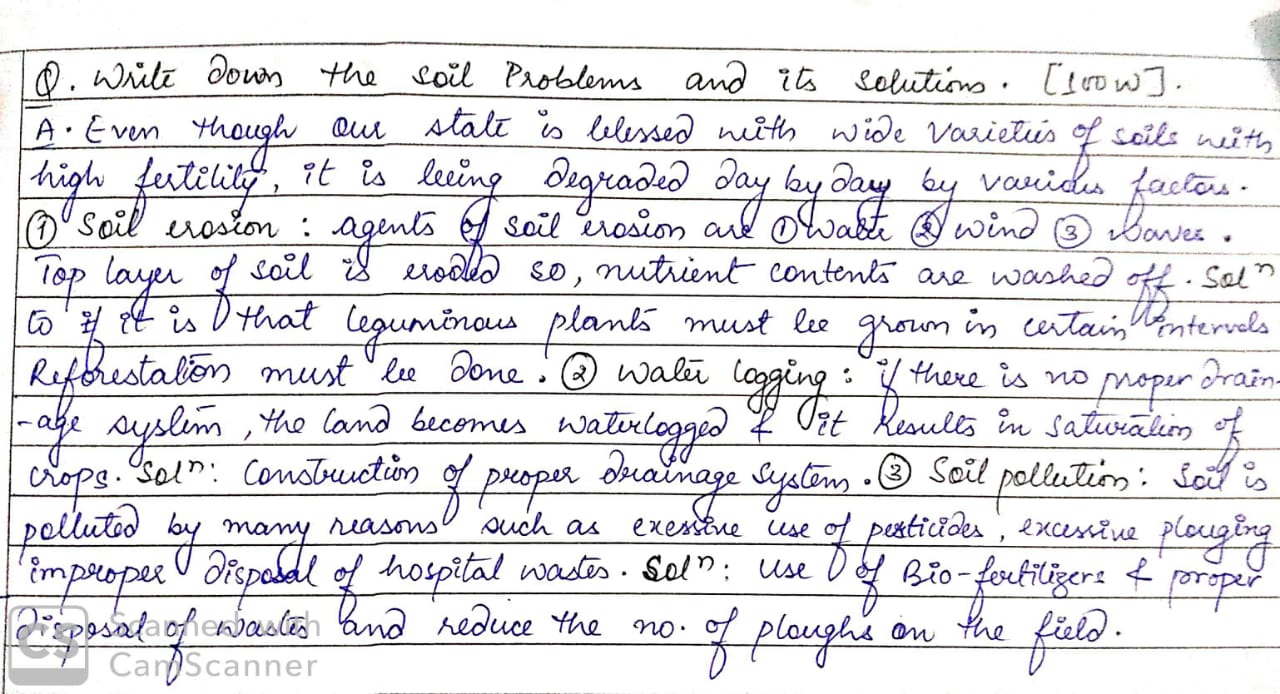 Q. Write down the soil Problems and its solutions. [100W].
A. Even though our state is blessed with wide varieties of soils with
high fertility, it is being degraded day by day by various factors.
① Soil erosion : agents of soil erosion are ① Water ② wind ③ waves.
Top layer of soil is eroded so, nutrient contents are washed off. Solⁿ
to it is that leguminous plants must be grown in certain intervels
Reforestation must be done. ② water logging : if there is no proper drain-
-age system, the land becomes waterlogged & it Results in saturation of
crops. Solⁿ: Construction of proper drainage System. ③ Soil pollution: Soil is
polluted by many reasons such as exessive use of pesticides, excessive plouging
improper disposal of hospital wastes. Solⁿ: use of Bio-fertilizers & proper
disposal of wastes and reduce the no. of ploughs on the field.
CS Scanned with
CamScanner